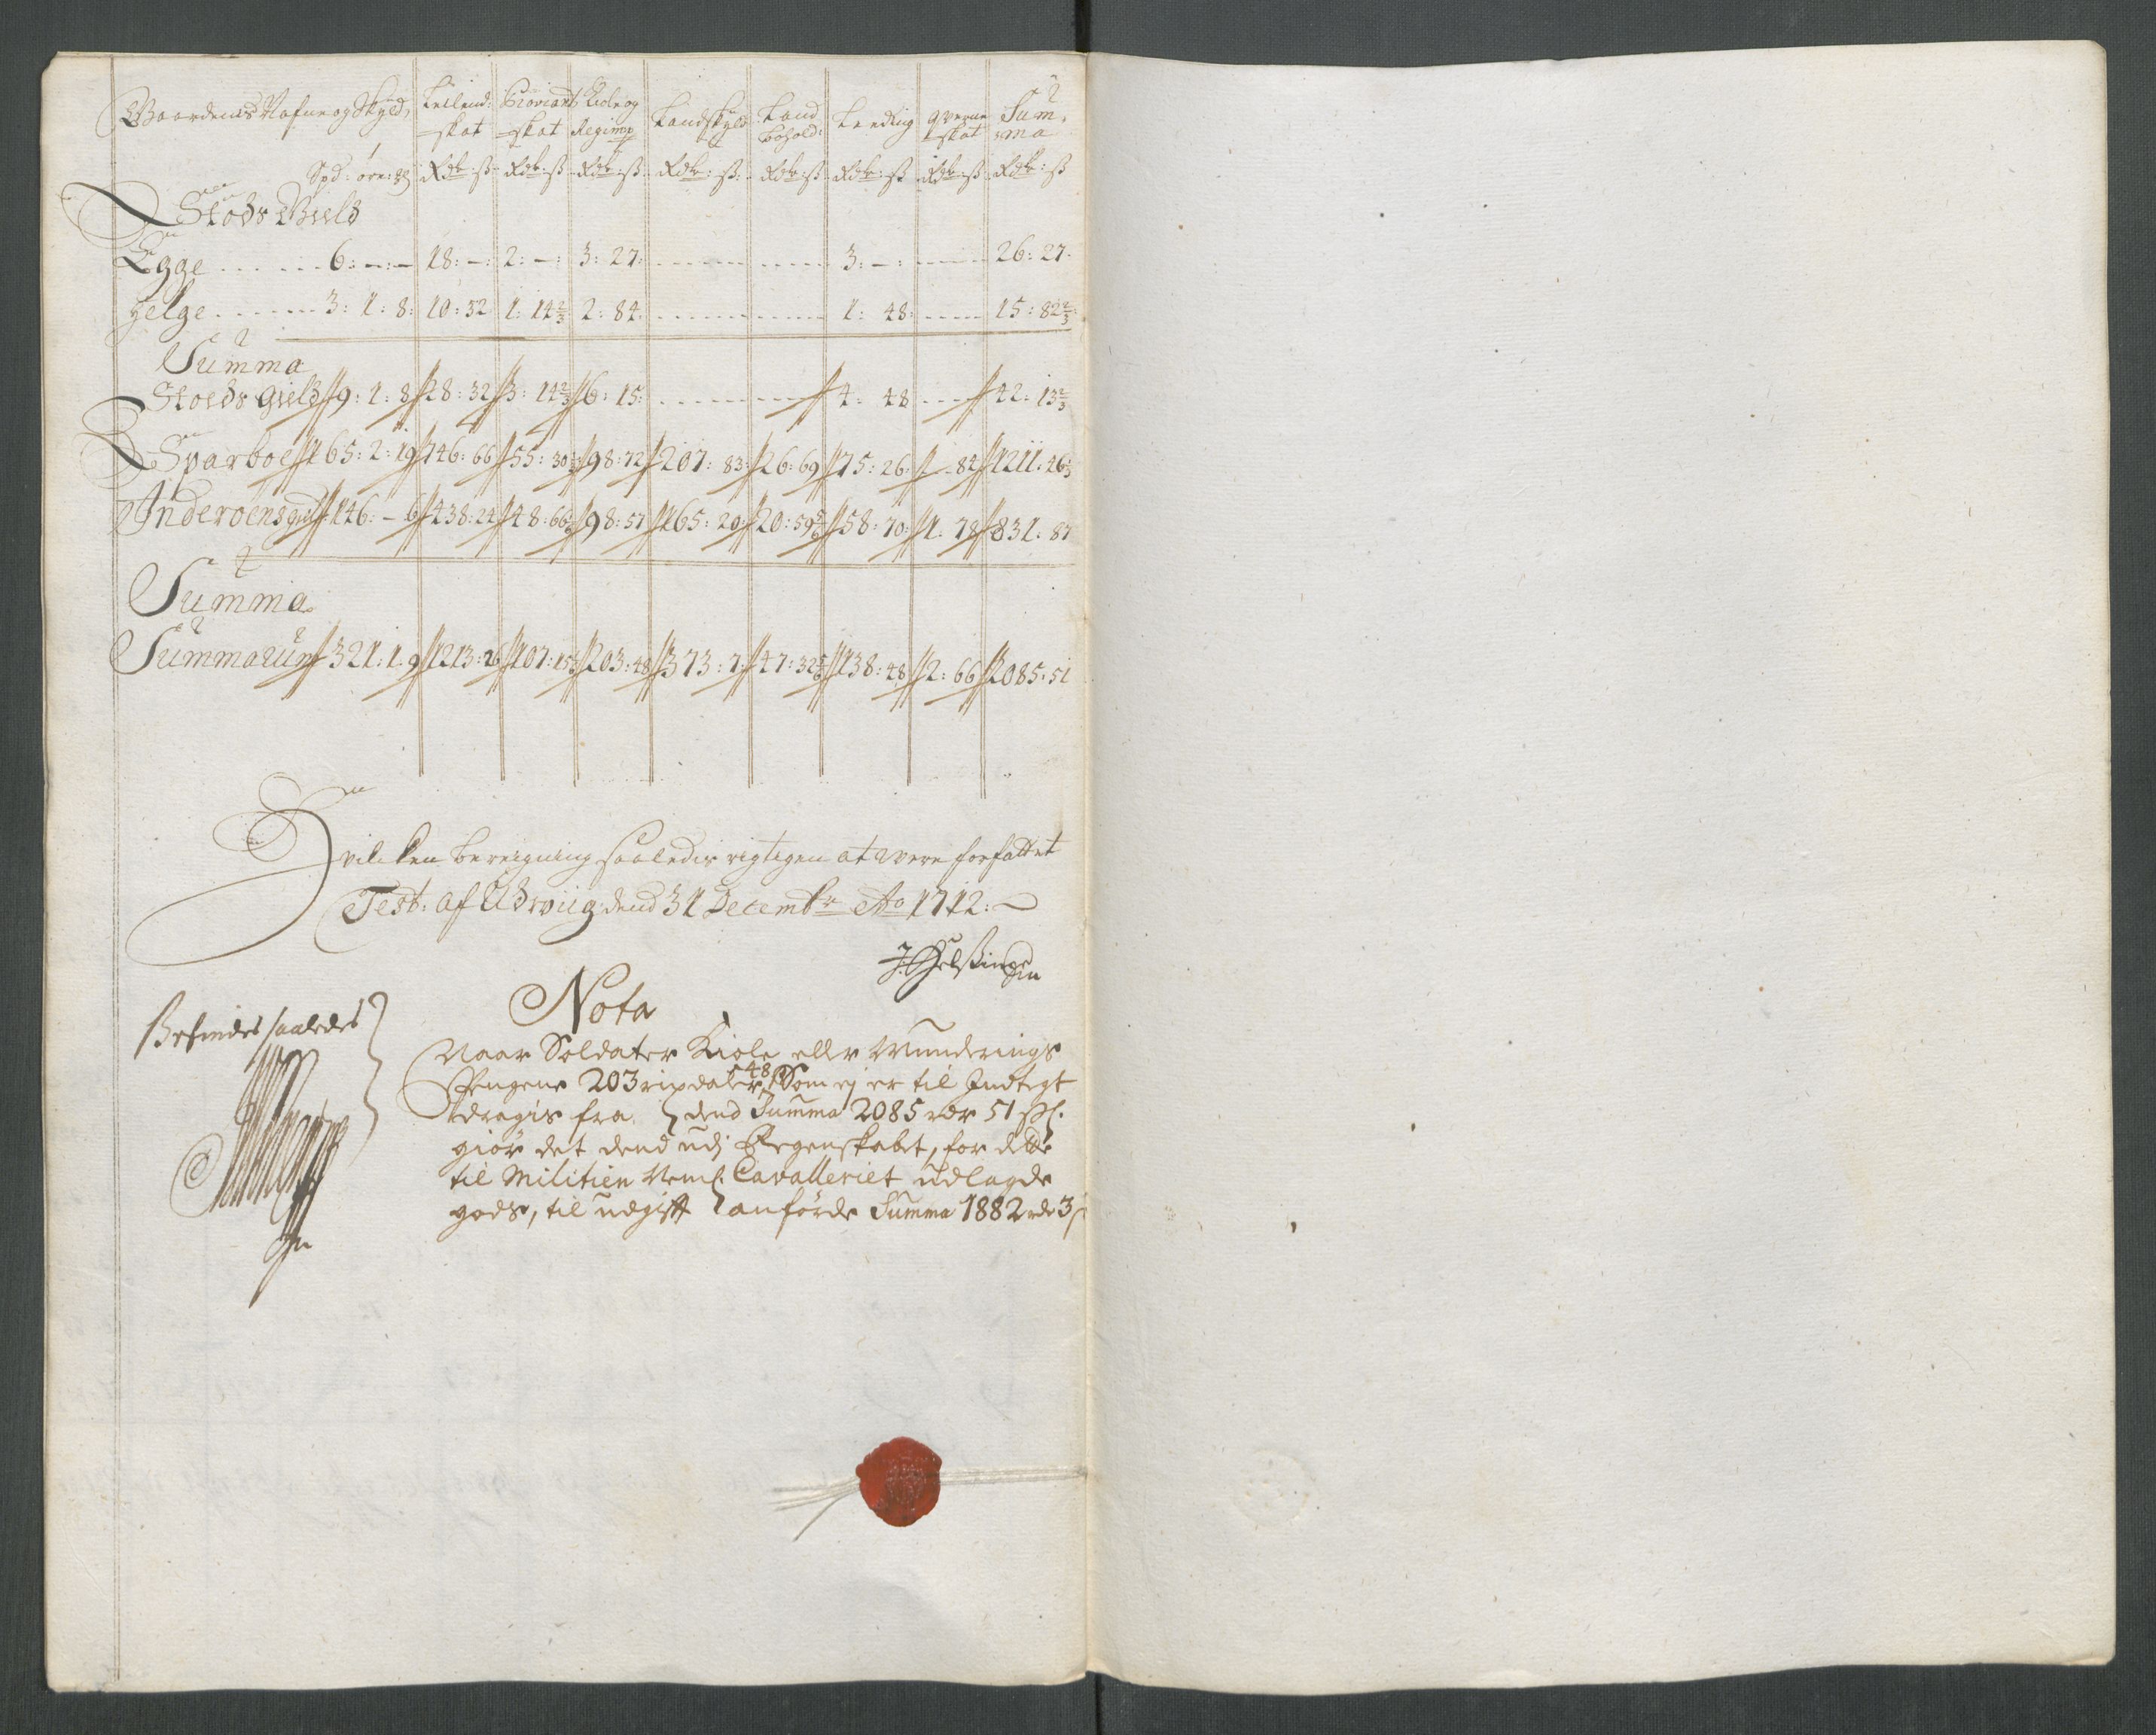 Gaardenes Nafne og Skyld, Leilend: skat Proviant skat Kiole og Regimp Landskyld Land bohold: Leeding qverne skat Sum, ma
Spd: øre: Rdr: ß Rdr: ß Rdr: ß Rdr: ß Rdr: ß Rdr: ß Rdr: ß Rdr: ß
Støds Gield
Egge 6: -: - 18: -: 2: -: 3: 27: 3: -: 26: 27.
Helge 3: 1: 8: 10: 32 1: 14 2/3 2: 84. 1: 48: 15: 82 2/3
Summa
Stoeds Gield 9: 1: 8 28: 32 3: 14 2/3 6: 15: 4: 48 42: 13 2/3
Sparboe 165: 2: 19 746: 66 55: 30 98: 72 207: 83: 26: 69 75: 26: - 84 1211: 46
Inderøens gield 146: - 6 438: 24 48: 66 98: 57 165: 20 20: 59 5/6 58: 70: 1. 78 831: 87
Summa
Summarum 321: 1. 9 1213: 26 107: 15 203: 48 373: 7: 47: 32 5/6 138: 48 2: 66 2085: 51
Hvilcken beregning saaledis rigtigen at være forfattet
Test: af Udviig dend 31 Decembr Ao 1712:
Nota
Befindes saaledes
Naar Soldater Kiole eller Munderings
Pengene 203 rixdaler 48 ß Som ej er til Indtegt
dragis fra dend Summa 2085 rdr 51 ß.
giør det dend udj Regenskabet, for dette
til Militien Neml. Cavalleriet udlagde
gods, til udgift anførde Summa 1882 rdr 3 ß